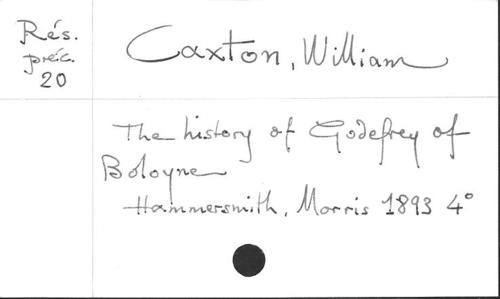 Rés.
préc.
20
Caxton, William
The history of Godefrey of
Boloyne
Hammersmith, Morris 1893 4°